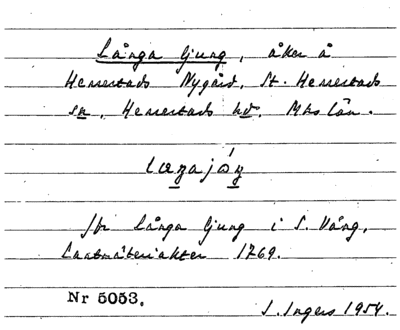 Långa ljung, åker å
Herrestads Nygård, St. Herrestads
sn, Herrestads hd, Mhs län.
laŋajóŋ
för Långa ljung i S. Vång,
Lantmäteriakter 1769.
Nr 5053.
I. Ingers 1954.